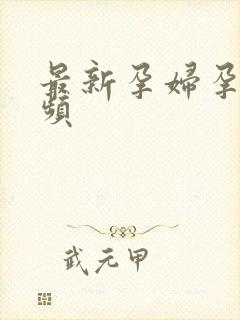 最新孕婦孕
頻
武元甲